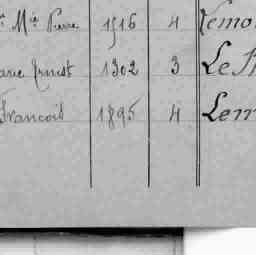 Mie Pierre 1516 4 Lemo
arie Ernest 1302 3 Le
Francois 1895 4 Lem